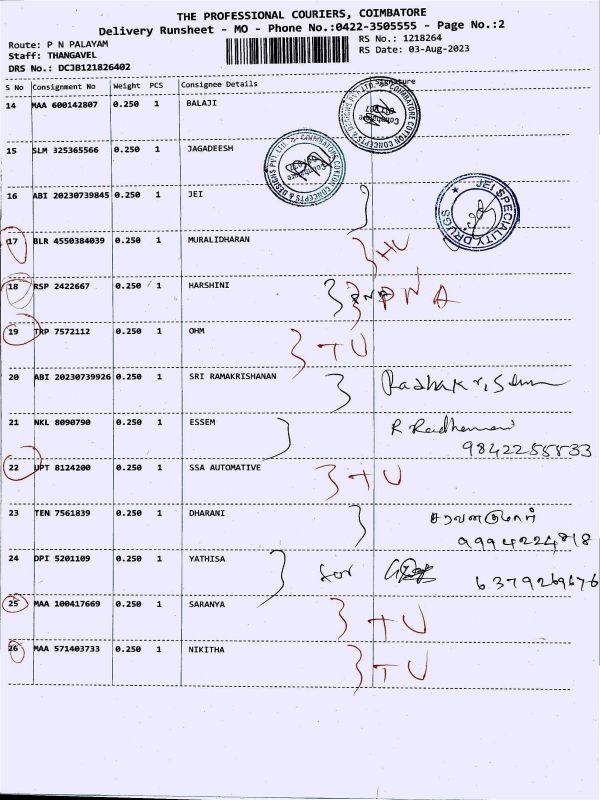 THE PROFESSIONAL COURIERS, COIMBATORE
Delivery Runsheet - MO - Phone No.:0422-3505555 - Page No.:2
Route: P N PALAYAM
RS No.: 1218264
Staff: THANGAVEL
RS Date: 03-Aug-2023
DRS No.: DCJB121826402
S No Consignment No Weight PCS Consignee Details Signature
14 MAA 600142807 0.250 1 BALAJI
15 SLM 325365566 0.250 1 JAGADEESH
16 ABI 20230739845 0.250 1 JEI
JEI SPECIALITY DRUGS
17 BLR 4550384039 0.250 1 MURALIDHARAN
18 RSP 2422667 0.250 1 HARSHINI PNA
19 TRP 7572112 0.250 1 OHM TU
20 ABI 20230739926 0.250 1 SRI RAMAKRISHANAN
21 NKL 8090790 0.250 1 ESSEM R
22 UPT 8124200 0.250 1 SSA AUTOMATIVE TU
23 TEN 7561839 0.250 1 DHARANI
24 DPI 5201109 0.250 1 YATHISA
25 MAA 100417669 0.250 1 SARANYA TU
26 MAA 571403733 0.250 1 NIKITHA TU